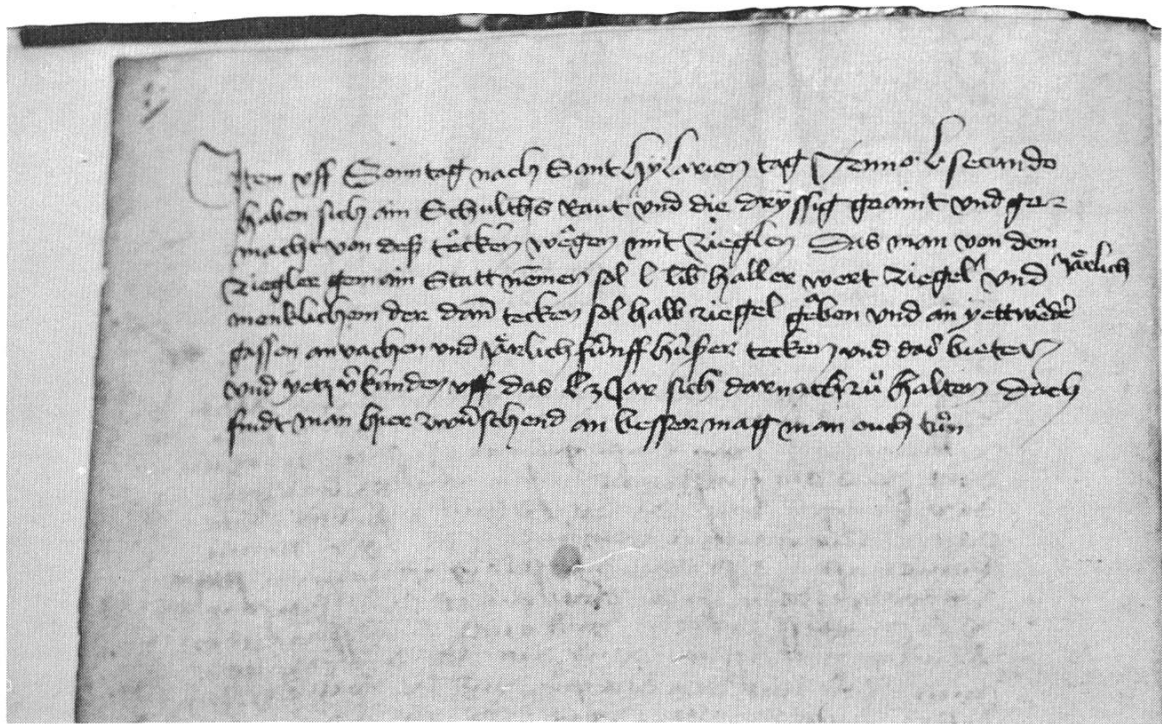 Item uff Sonntag nach Sant hylarien tag Anno l secundo
haben sich ain Schulths Raut und die dryssig geaint und ge
macht von deß teckens wegen mit zieglen Das man von dem
ziegler gemain Statt nemen sol l lib haller wert ziegel und järlich
menklichem der dann tecken sol halb ziegel geben und an yettweder
gassen anvachen und järlich fünff hüser tecken und das bieten
und yetz verkünden uff das Jar sich darnach zů halten doch
findt man hier zwüschend an besser mag man ouch tůn